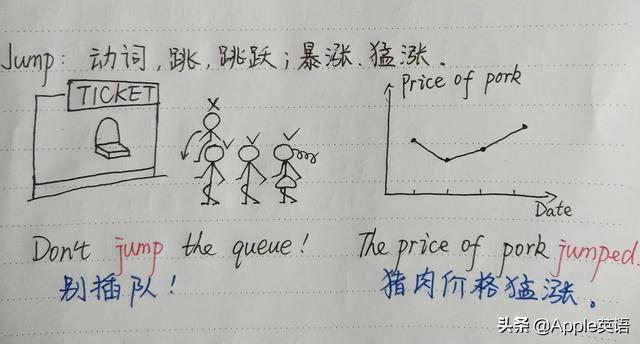 Jump: 动词, 跳, 跳跃; 暴涨、猛涨.
TICKET
Price of pork
Date
Don't jump the queue!
别插队!
The price of pork jumped.
猪肉价格猛涨。
头条 @Apple英语